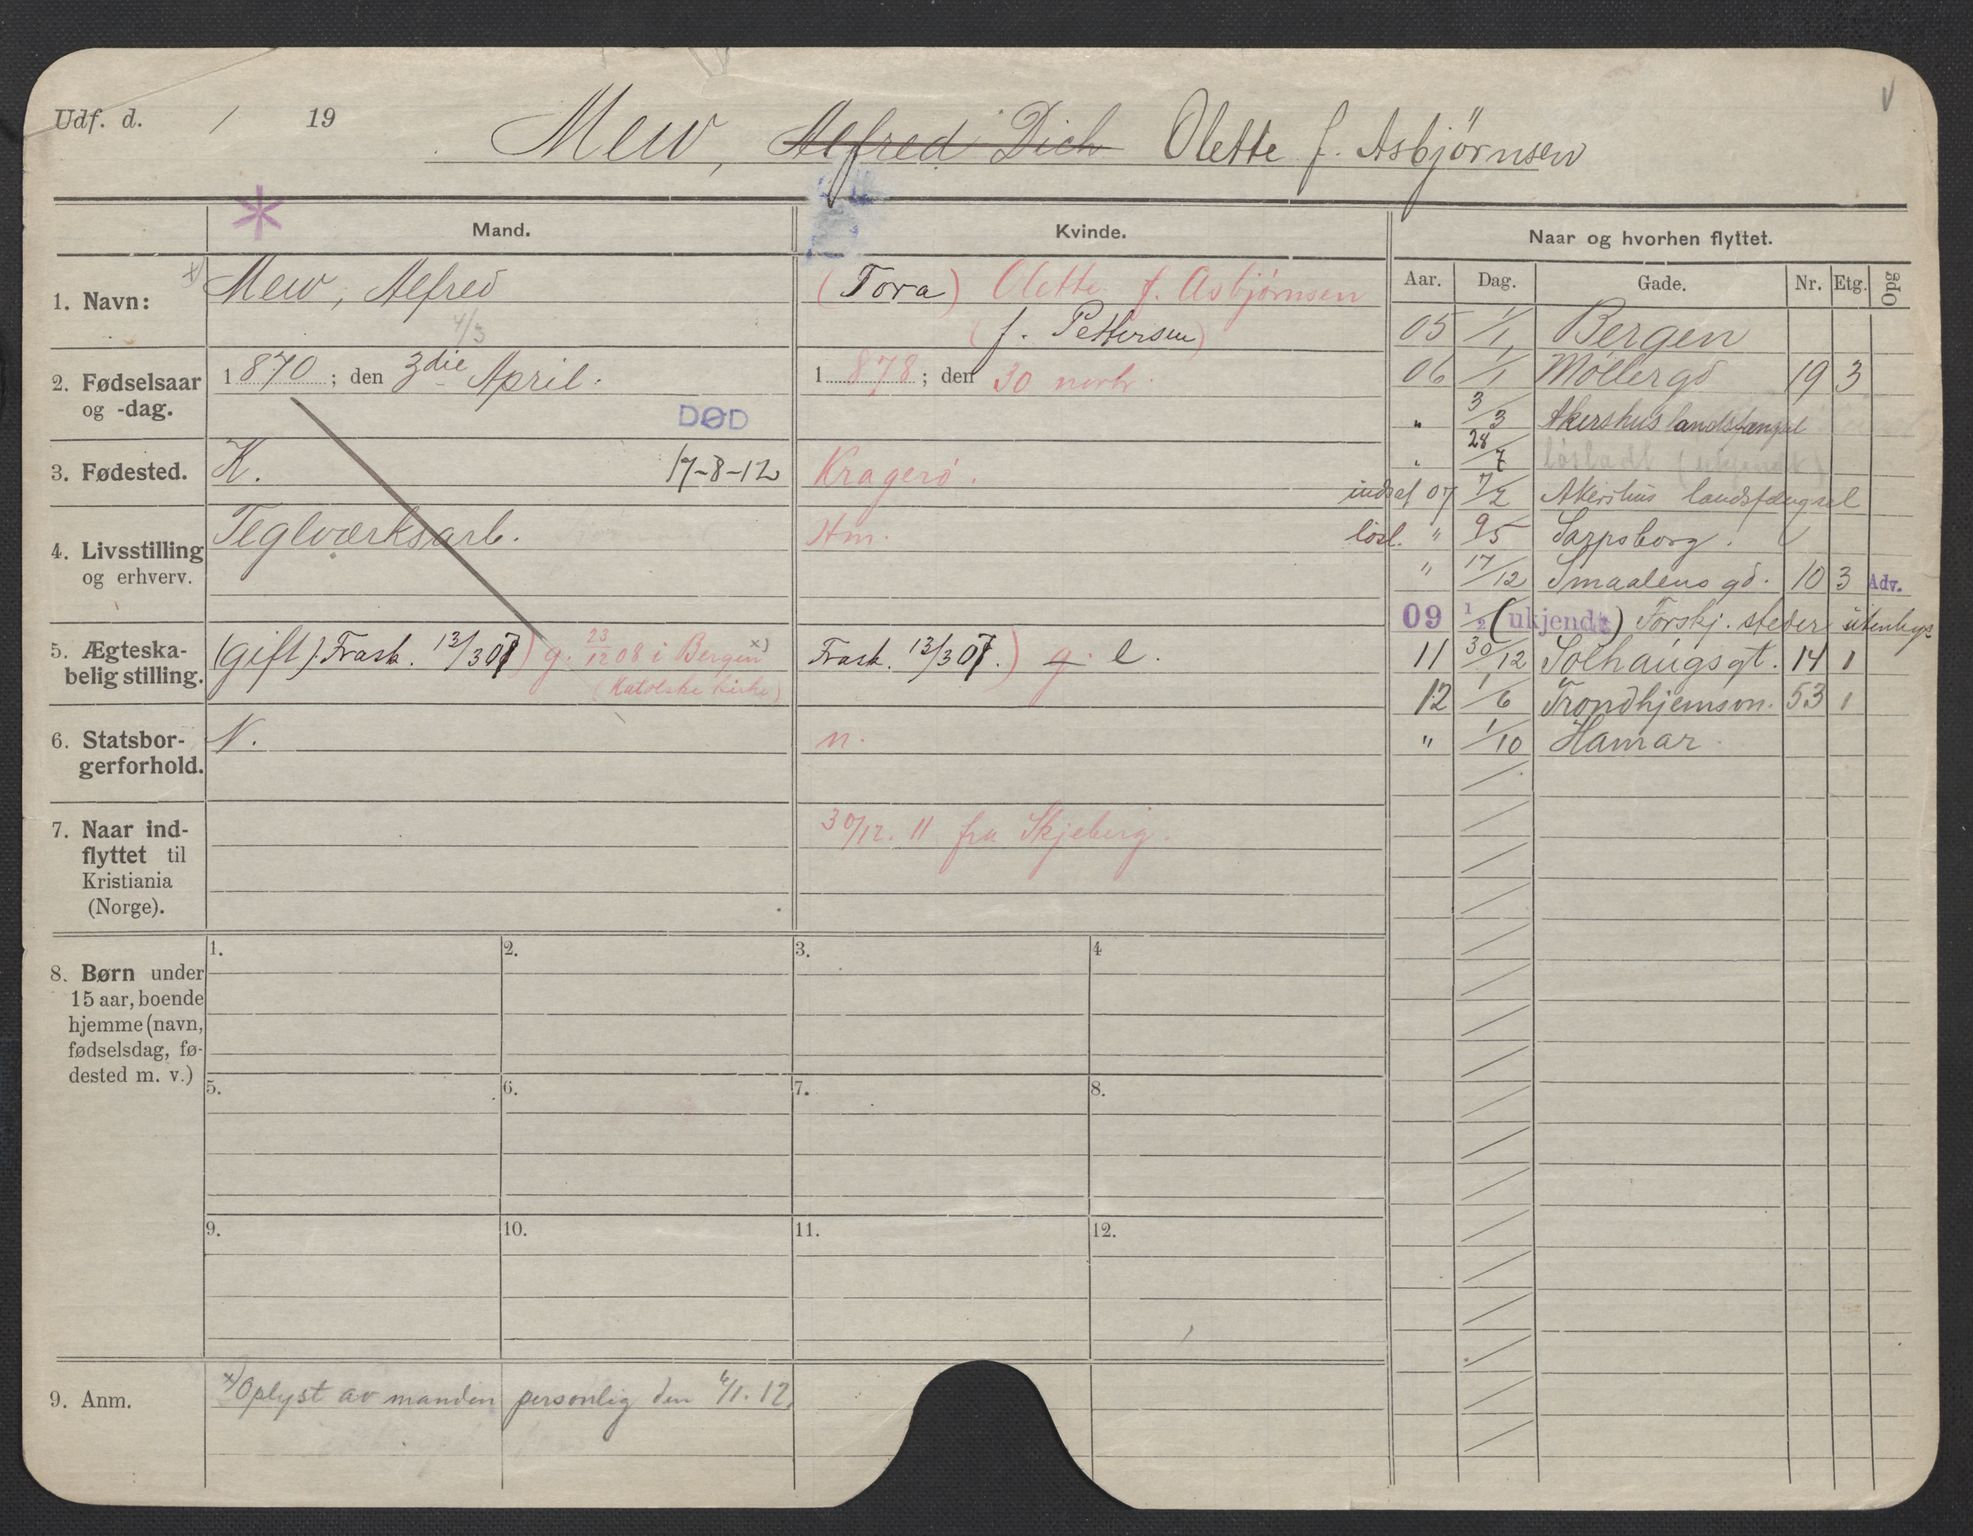 Udf. d. / 19
Mew, Alfred Dich Olette f. Asbjørnsen
Mand.
Kvinde.
Naar og hvorhen flyttet.
Aar. Dag. Gade. Nr. Etg. Opg
1. Navn:
x) Mew, Alfred
4/3
(Tora) Olette f. Asbjørnsen
(f. Pettersen)
2. Fødselsaar
og -dag.
1870; den 3die April.
DØD
1878; den 30 novbr.
3. Fødested.
K. 17-8-12
Kragerø.
4. Livsstilling
og erhverv.
Teglværksarb.
Hm.
5. Ægteska-
belig stilling.
(gift). Frask. 13/3 07) g. 23/12 08 i Bergen x)
(Katolske kirke)
Frask. 13/3 07.) g. e.
6. Statsbor-
gerforhold.
N.
n.
7. Naar ind-
flyttet til
Kristiania
(Norge).
30/12. 11 fra Skjeberg.
05 1/1 Bergen
06 1/1 Møllergd 19 3
" 3/3 Akershus landsfængsel
" 28/7 løsladt (ukjendt)
indsat 07 7/2 Akershus landsfængsel
løsl. " 9/5 Sarpsborg.
" 17/12 Smaalensgd. 10 3 Adv.
09 1/2 (ukjendt) Forskj. steder utenbys
11 30/12 Solhaugsgt. 14 1
12 1/6 Trondhjemsvn. 53 1
" 1/10 Hamar.
8. Børn under
15 aar, boende
hjemme (navn,
fødselsdag, fø-
dested m. v.)
1. 2. 3. 4
5. 6. 7. 8.
9. 10. 11. 12.
9. Anm.
x) Oplyst av manden personlig den 6/1. 12.